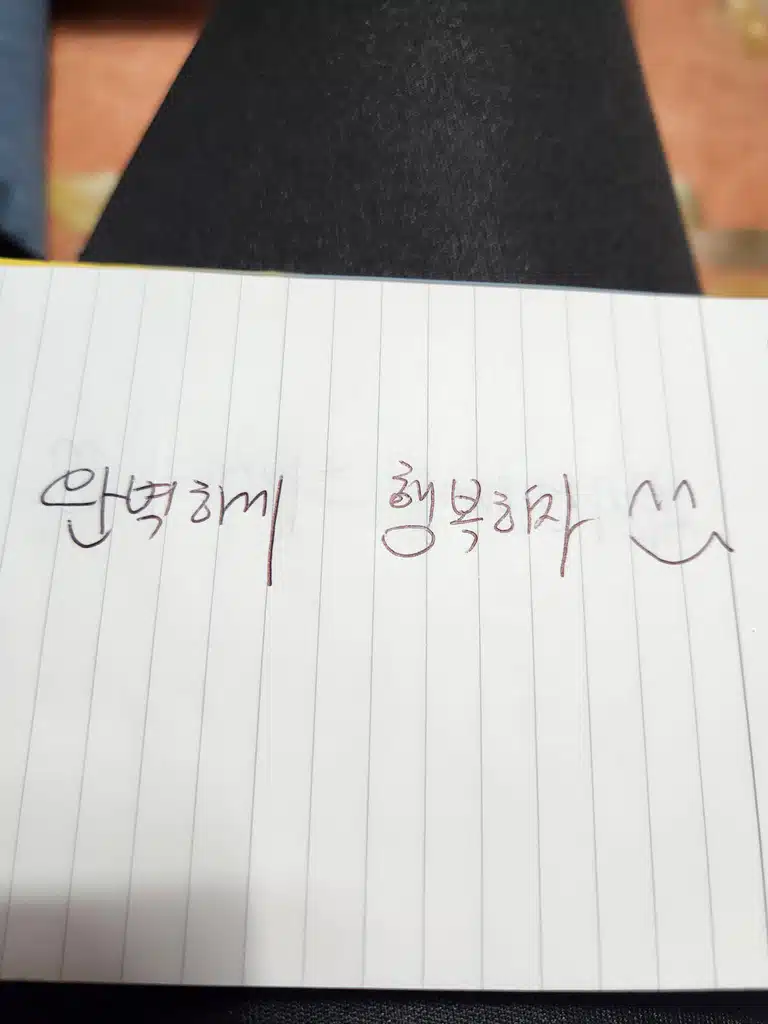 완벽하게 행복하자 ^^